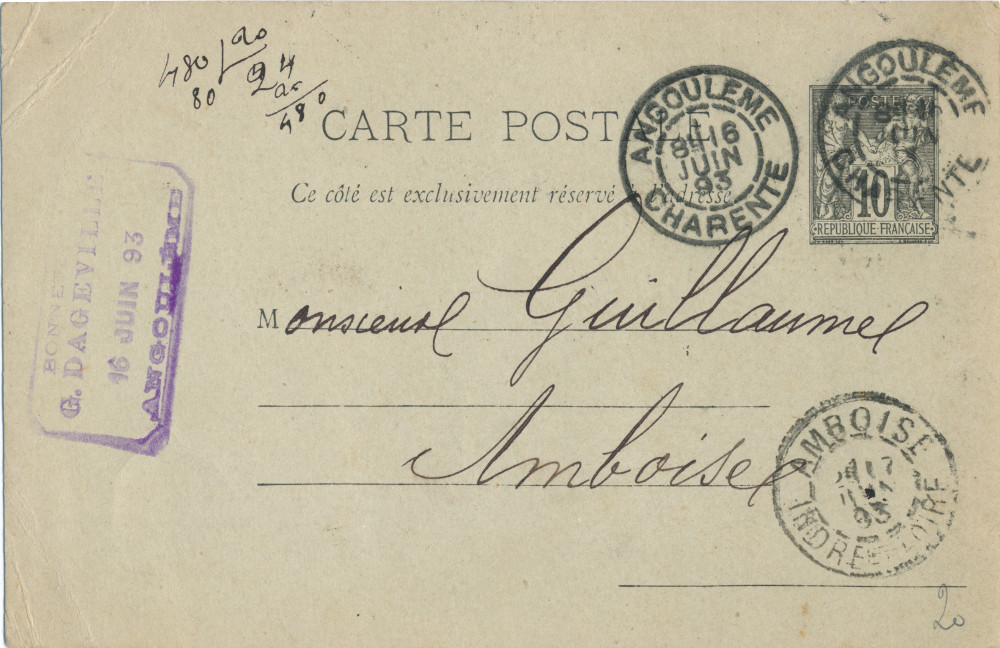 480 20
80 24
20
480
CARTE POSTALE
Ce côté est exclusivement réservé à l'adresse
ANGOULEME
8E 16
JUIN
93
CHARENTE
ANGOULEME
JUIN
POSTES
10
REPUBLIQUE FRANÇAISE
BONNET
G. DAGEVILLE
16 JUIN 93
ANGOULÊME
Monsieur Guillaume
Amboise
AMBOISE
17
93
INDRE ET LOIRE
20